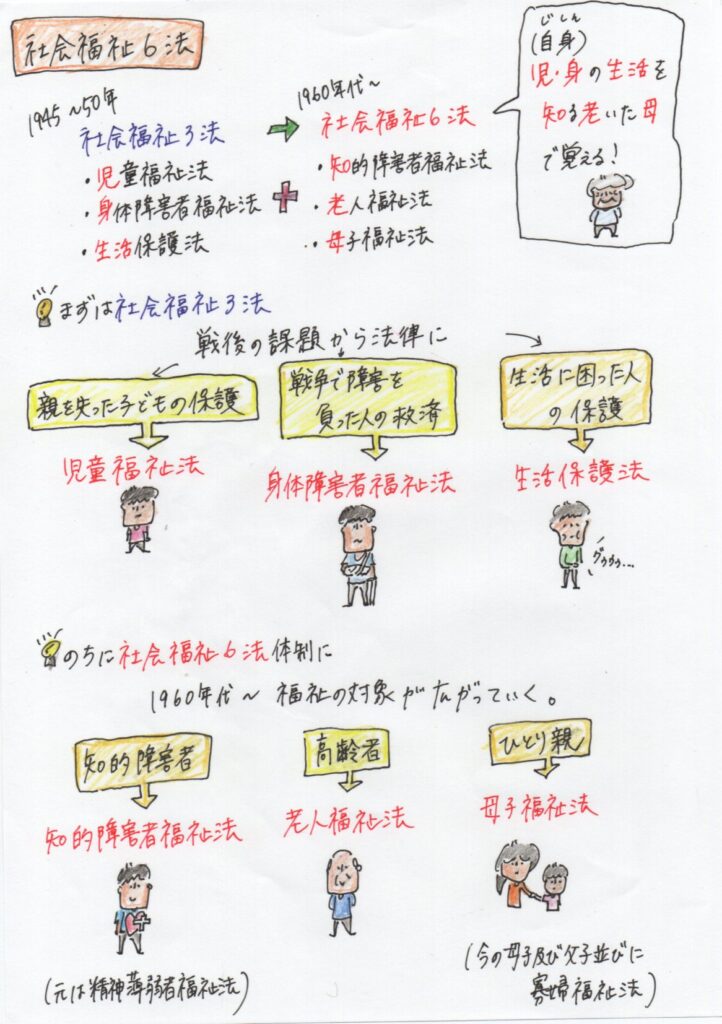 社会福祉6法
1945~50年
社会福祉3法
・児童福祉法
・身体障害者福祉法
・生活保護法
1960年代~
社会福祉6法
・知的障害者福祉法
・老人福祉法
・母子福祉法
じしん
(自身)
児・身の生活を
知る老いた母
で覚える!
まずは社会福祉3法
戦後の課題から法律に
親を失った子どもの保護
児童福祉法
戦争で障害を
負った人の救済
身体障害者福祉法
生活に困った人
の保護
生活保護法
グゥゥゥ…
のちに社会福祉6法体制に
1960年代~ 福祉の対象が広がっていく。
知的障害者
知的障害者福祉法
(元は精神薄弱者福祉法)
高齢者
老人福祉法
ひとり親
母子福祉法
(今の母子及び父子並びに
寡婦福祉法)